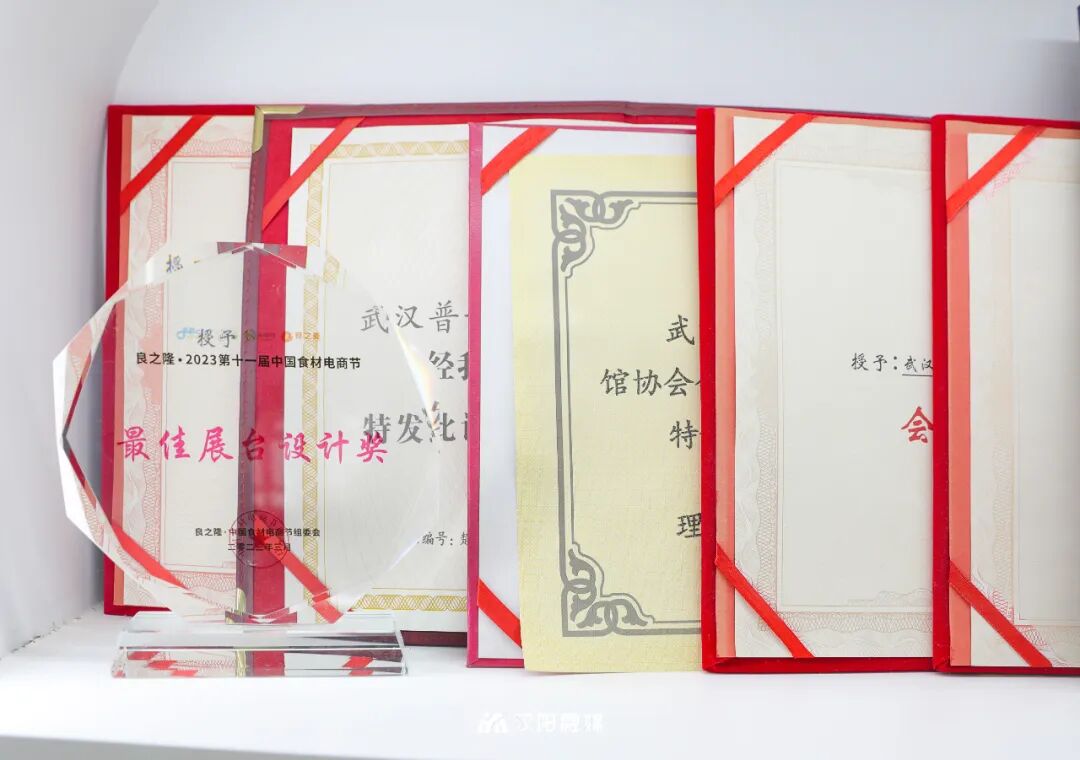 授予
良之隆·2023第十一届中国食材电商节
最佳展台设计奖
良之隆·中国食材电商节组委会
二〇二三年三月
武汉普
经我
特发此
编号:楚
武
馆协会
特
理
授予:武汉
会
汉阳融媒